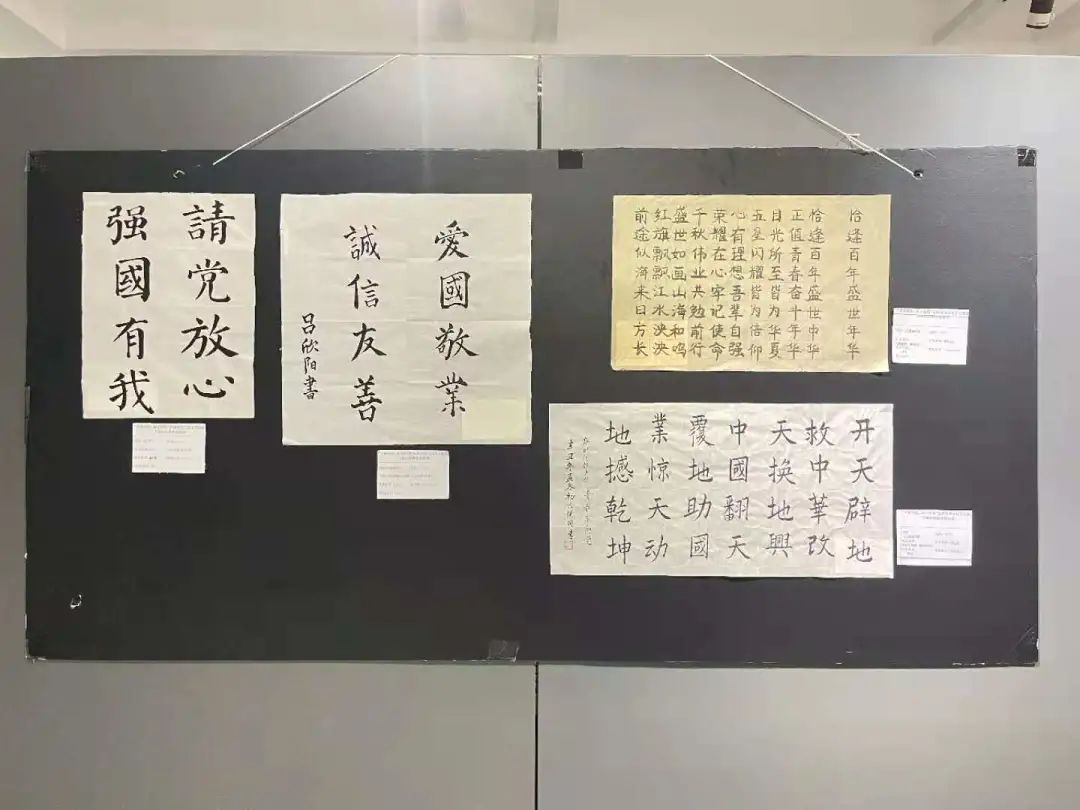 請党放心
强國有我
愛國敬業
誠信友善
吕欣阳書
恰逢百年盛世年华
恰逢百年盛世中华
正值青春奋斗年华
日光所至皆为华夏
五星闪耀皆为信仰
心有理想吾辈自强
荣耀在心牢记使命
千秋伟业共勉前行
盛世如画山海和鸣
红旗飘飘江水泱泱
前途似海来日方长
开天辟地
救中華改
天换地興
中國翻天
覆地助國
業惊天动
地撼乾坤